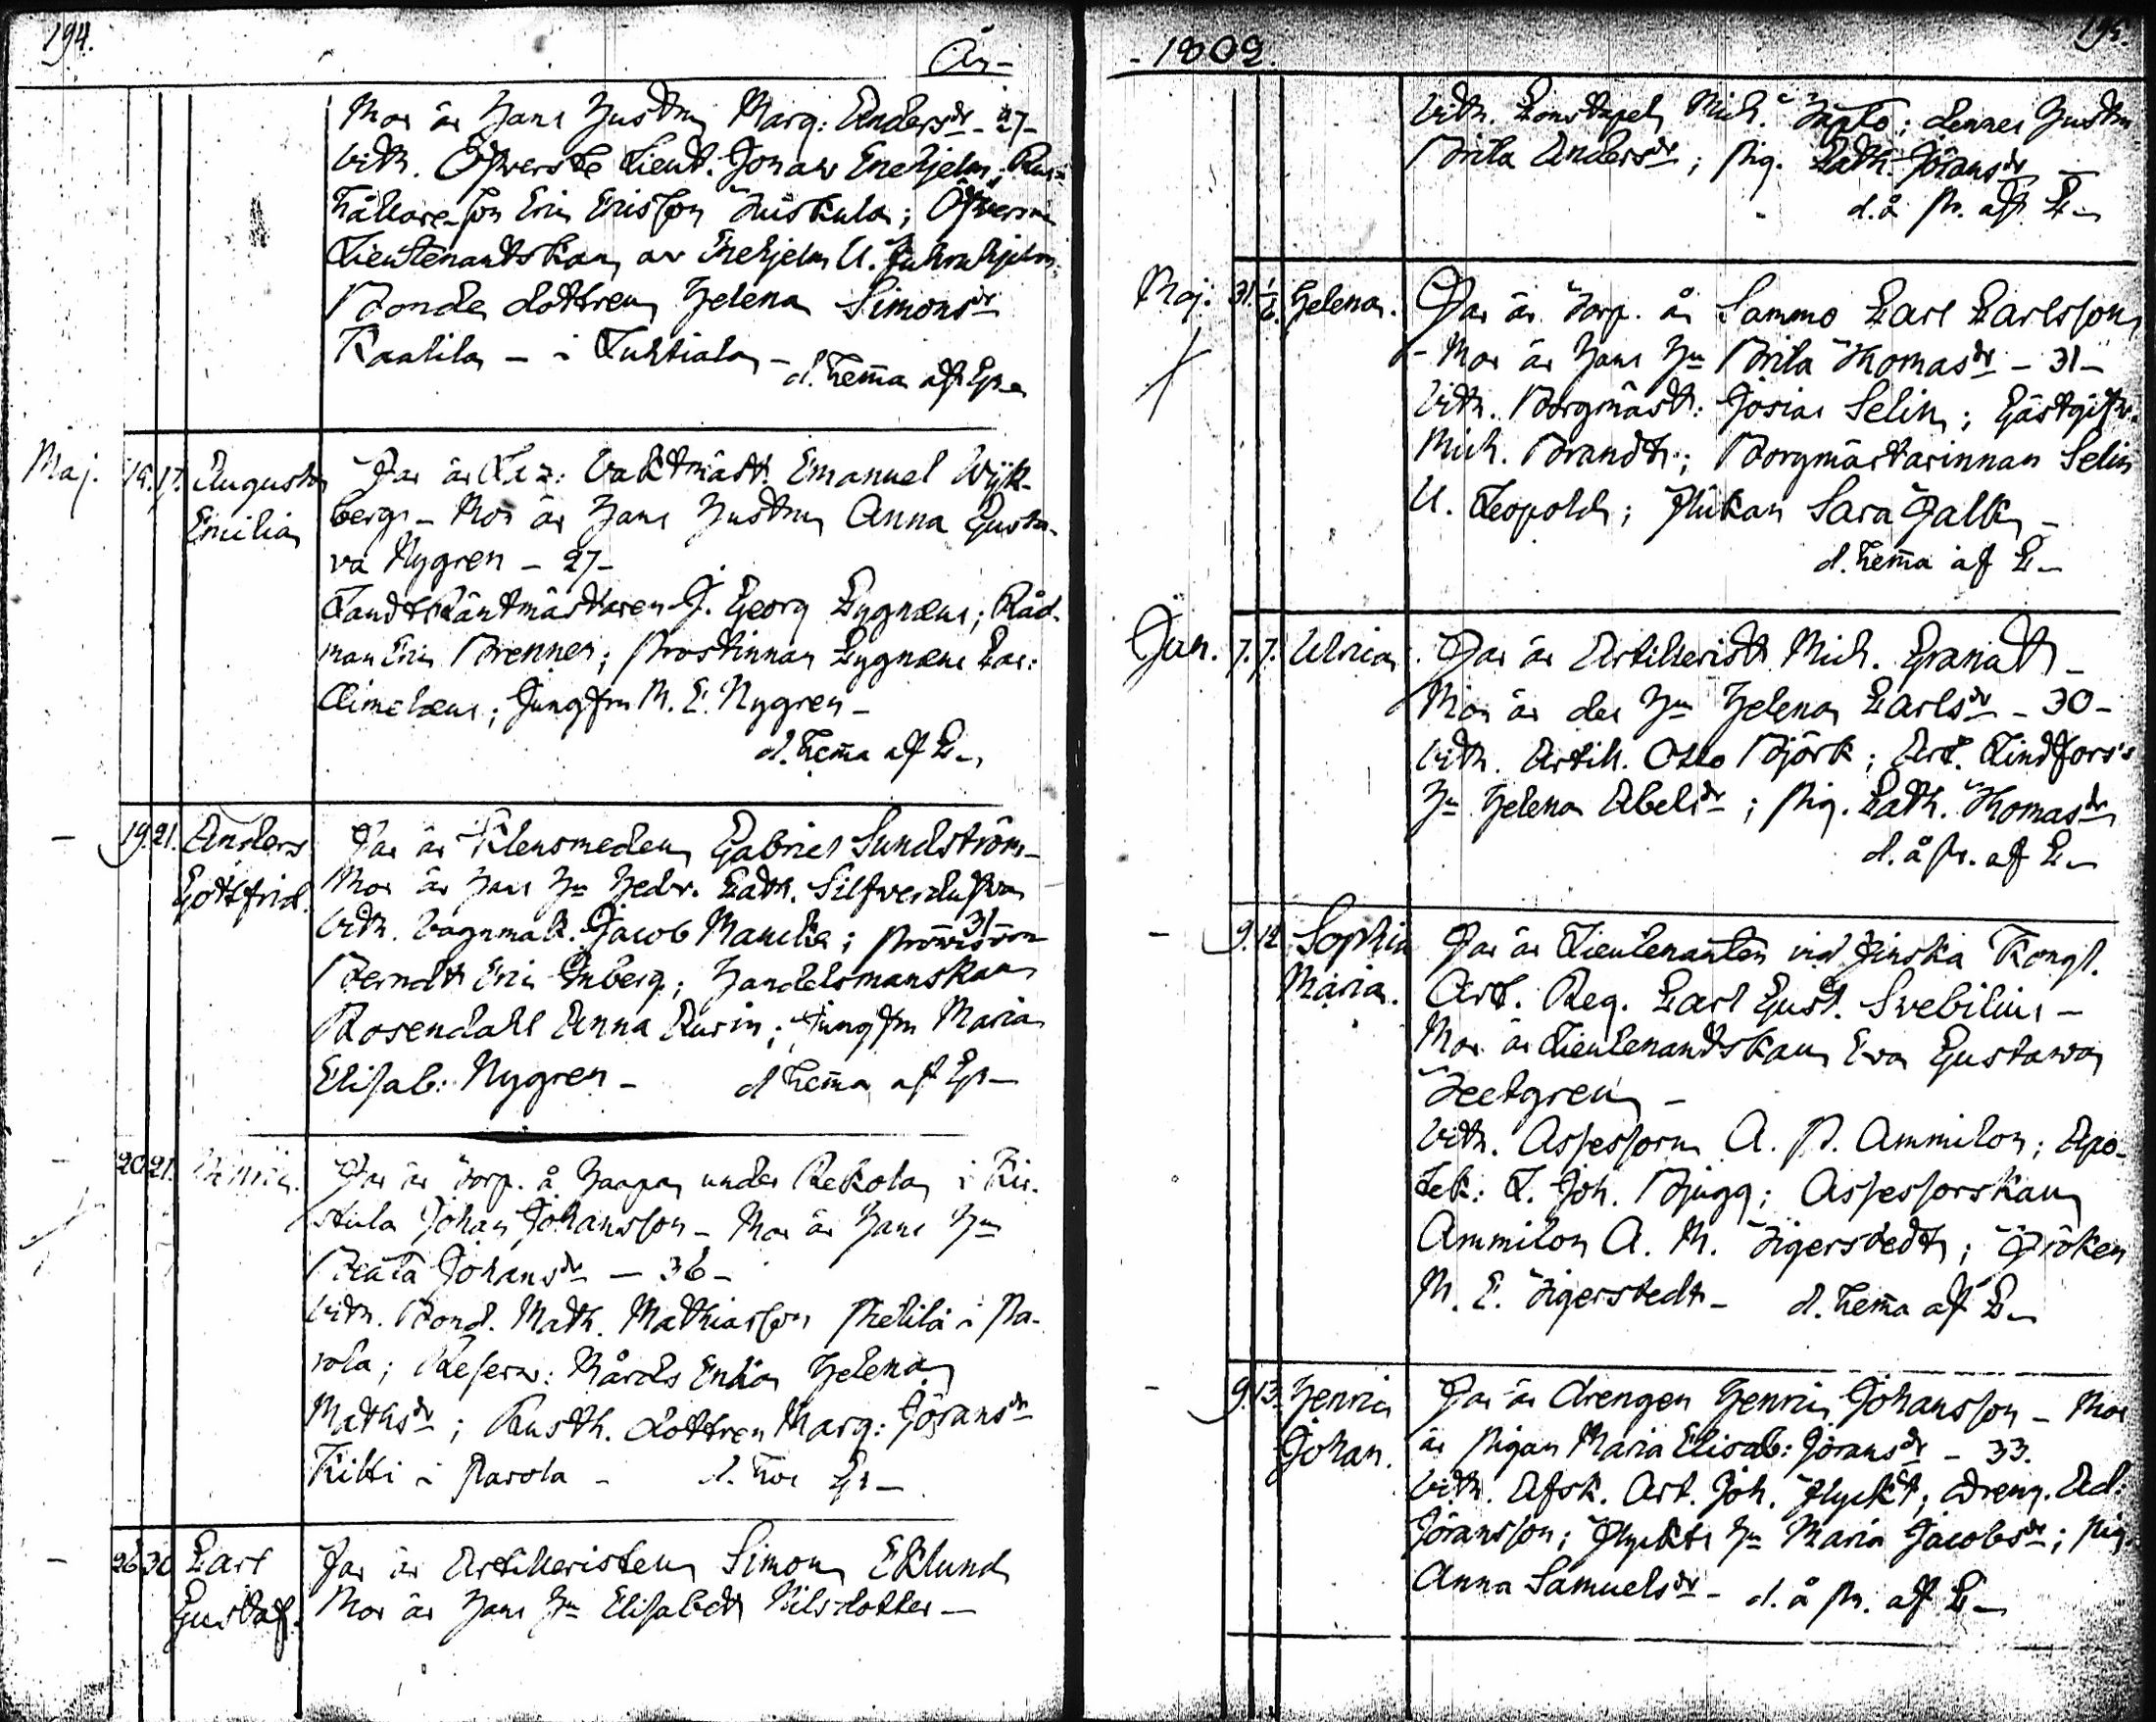 194.
År
Mor är Hans Hustru Marg: Andersdr - 27 -
Vittn. Öfwerste Lieut. Jonas Enehjelm; Rust
hållare Son Eric Ericsson Huskula; Öfwerste
Lieutenantskan av Enehjelm U.
Bonde dottren Helena Simonsdr
Raalila - i Luhtiala - d. hema af Gr.
Maj. 17. Augusta Far är Laz: Vaktmäst. Emanuel Wijk-
Emilia berg - Mor är Hans Hustru Anna Gusta-
va Nygren - 27 -
Landträntmästaren J. Georg Cygnæus; Råd-
man Eric Brenner; Prostinnan Cygnæus Car:
Limelæus; Jungfru M. E. Nygren -
d. hema af C.
- 19. 21. Anders Far är Klensmeden Gabriel Sundström -
Gottfrid. Mor är Hans Hu Hedv. Cath. Silfwerdufva
31
Vittn. Vagnmak. Jacob Mancke; Provisorn
Berndt Eric Enberg; Handelsmanskan
Rosendahl Anna Aurin; Jungfru Maria
Elisab: Nygren - d hema af Gr -
- 20 21. Far är Torp. å Haapa under Rekola i Kir-
stula Johan Johansson - Mor är Hans Hu
Beata Johansdr - 36 -
Vittn. Bond. Math. Mathiasson Prelilä i Pa-
rola; Reserv: Mårds Enka Helena
Mathsdr; Rusth. dottren Marg: Jöransdr
Kitti i Parola - d. hos Gr -
- 26 30 Carl Far är Artilleristen Simon Eklund
Gustaf. Mor är Hans Hu Elisabeth Nilsdotter -
- 1802. 195.
Vittn. Constapel Mich. ; dennes Hustru
Brita Andersdr; Pig. Cath. Jöransdr -
d. å Pr. af C -
Maj. 31. 1/6. Helena. Far är Torp. å Sammo Carl Carlsson
- Mor är Hans Hu Brita Thomasdr - 31 -
Vittn. Borgmäst: Josias Selin; Gästgifw.
Mich. Brandt; Borgmästarinnan Selin
U. Leopold; Flickan Sara Falk -
d. hema af C -
Jun. 7. 7. Ulrica. Far är Artillerist Mich. Granath -
Mor är des Hu Helena Carlsdr - 30 -
Vittn. Artill. Otto Björk; Art. Lindfors's
Hu Helena Abelsdr; Pig. Cath. Thomasdr
d. å Pr. af C -
- 9. 12 Sophia Far är Lieutenanten vid Finska Kongl.
Maria. Art. Reg. Carl Gust. Svebilius -
Mor är Lieutenantskan Eva Gustava
Zeetgren -
Vittn. Assessorn A. P. Ammilon; Apo-
tek: L. Joh. Bjugg; Assessorskan
Ammilon A. M. Tigerstedt; Fröken
M. E. Tigerstedt - d. hema af C -
- 9. 13. Henric Far är drengen Henric Johansson - Mor
Johan. är Pigan Maria Elisab: Jöransdr - 33.
Vittn. Afsk. Art. Joh. Flyckt; dreng. Ad:
Jöransson; Flyckts Hu Maria Jacobsdr; Pig.
Anna Samuelsdr - d. å Pr. af C -